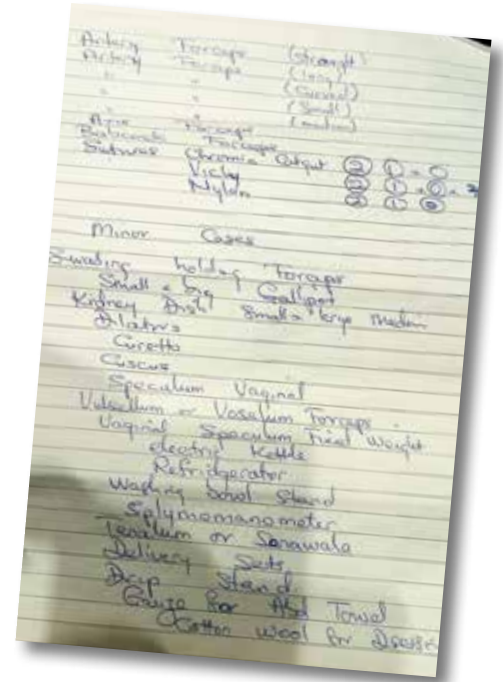 Artery Forceps (straight)
Artery Forceps (long)
" " (Curved)
" " (Small)
" " (medium)
Forceps
Forceps
Sutures Chromic Catgut ② ① - ⓪
Vicky ② ① - ⓪ -
Nylon ② ① ⓪
Minor Cases
holding Forceps
Small + big Gallipot
Kidney Dish Small + large medium
Dilators
Curette
Cuscus
Speculum Vaginal
Vulsellum or Vosalum Forceps
Vaginal Speculum Weight
electric Kettle
Refridgerator
Washing bowl Stand
Sphymomanometer
or
Delivery Sets
Drip Stand
Gauze for Abd Towel
Cotton wool for